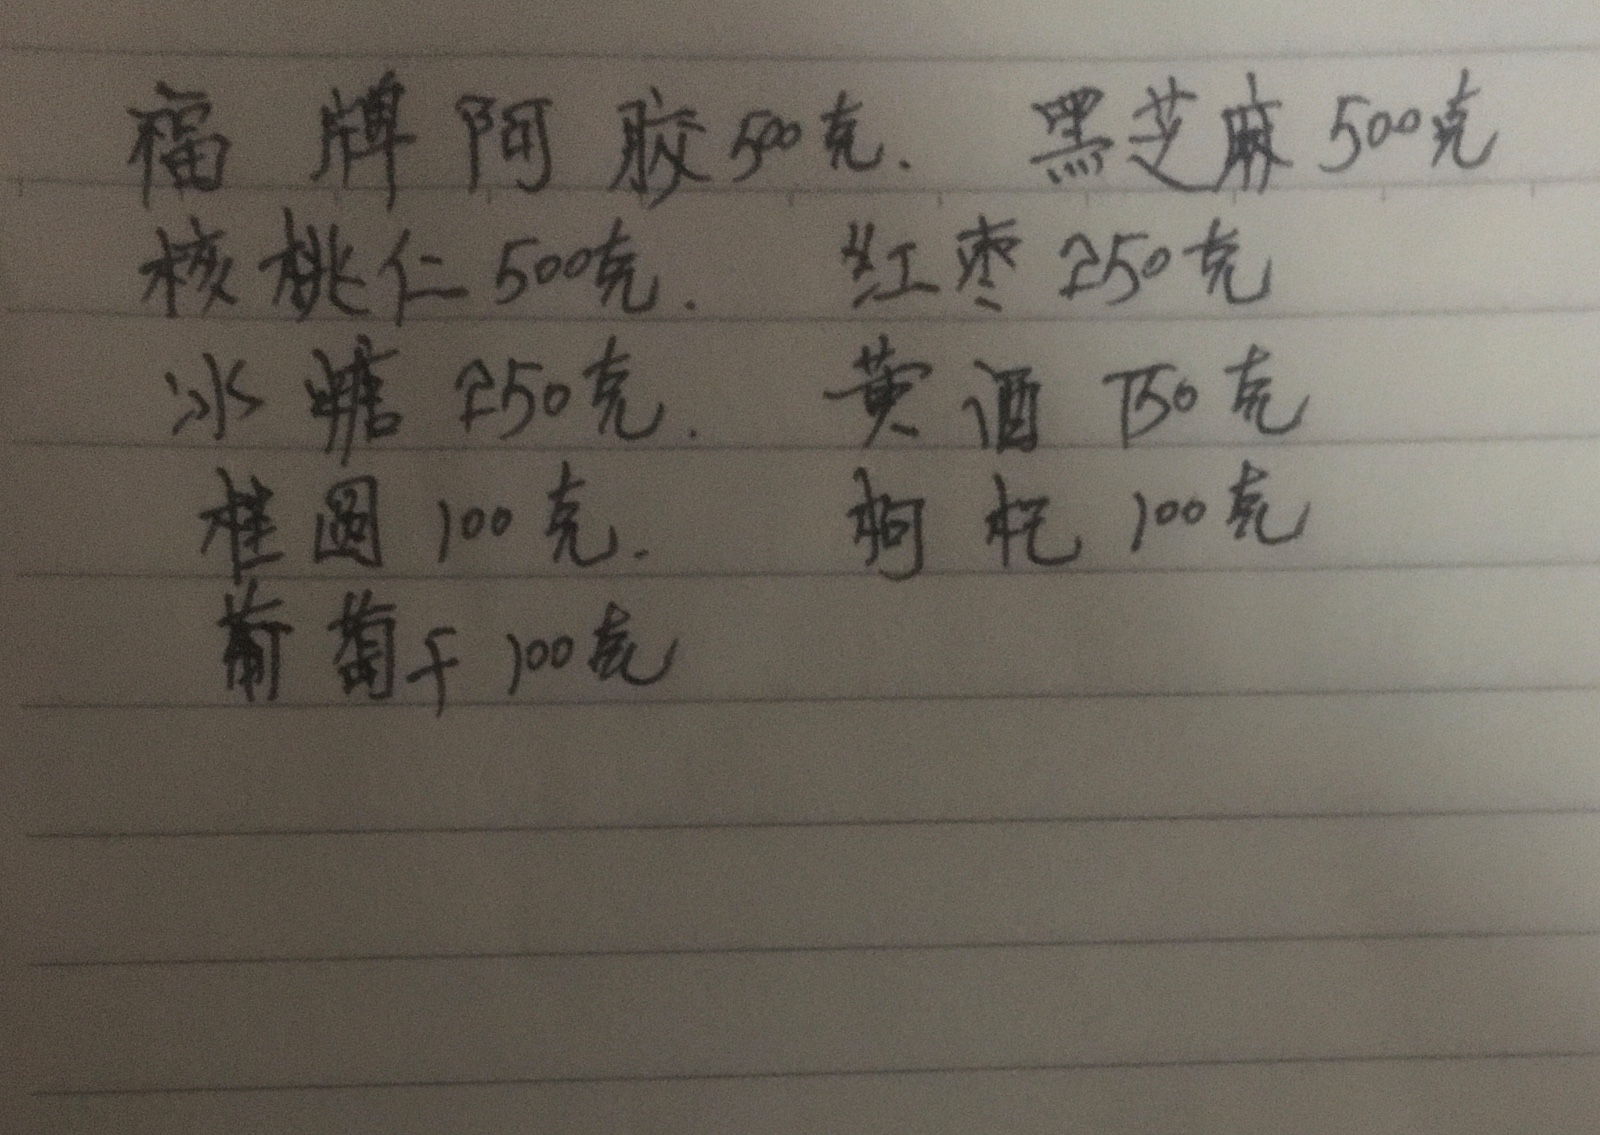 福牌阿胶500克. 黑芝麻500克
核桃仁500克. 红枣250克
冰糖250克. 黄酒750克
桂圆100克. 枸杞100克
葡萄干100克